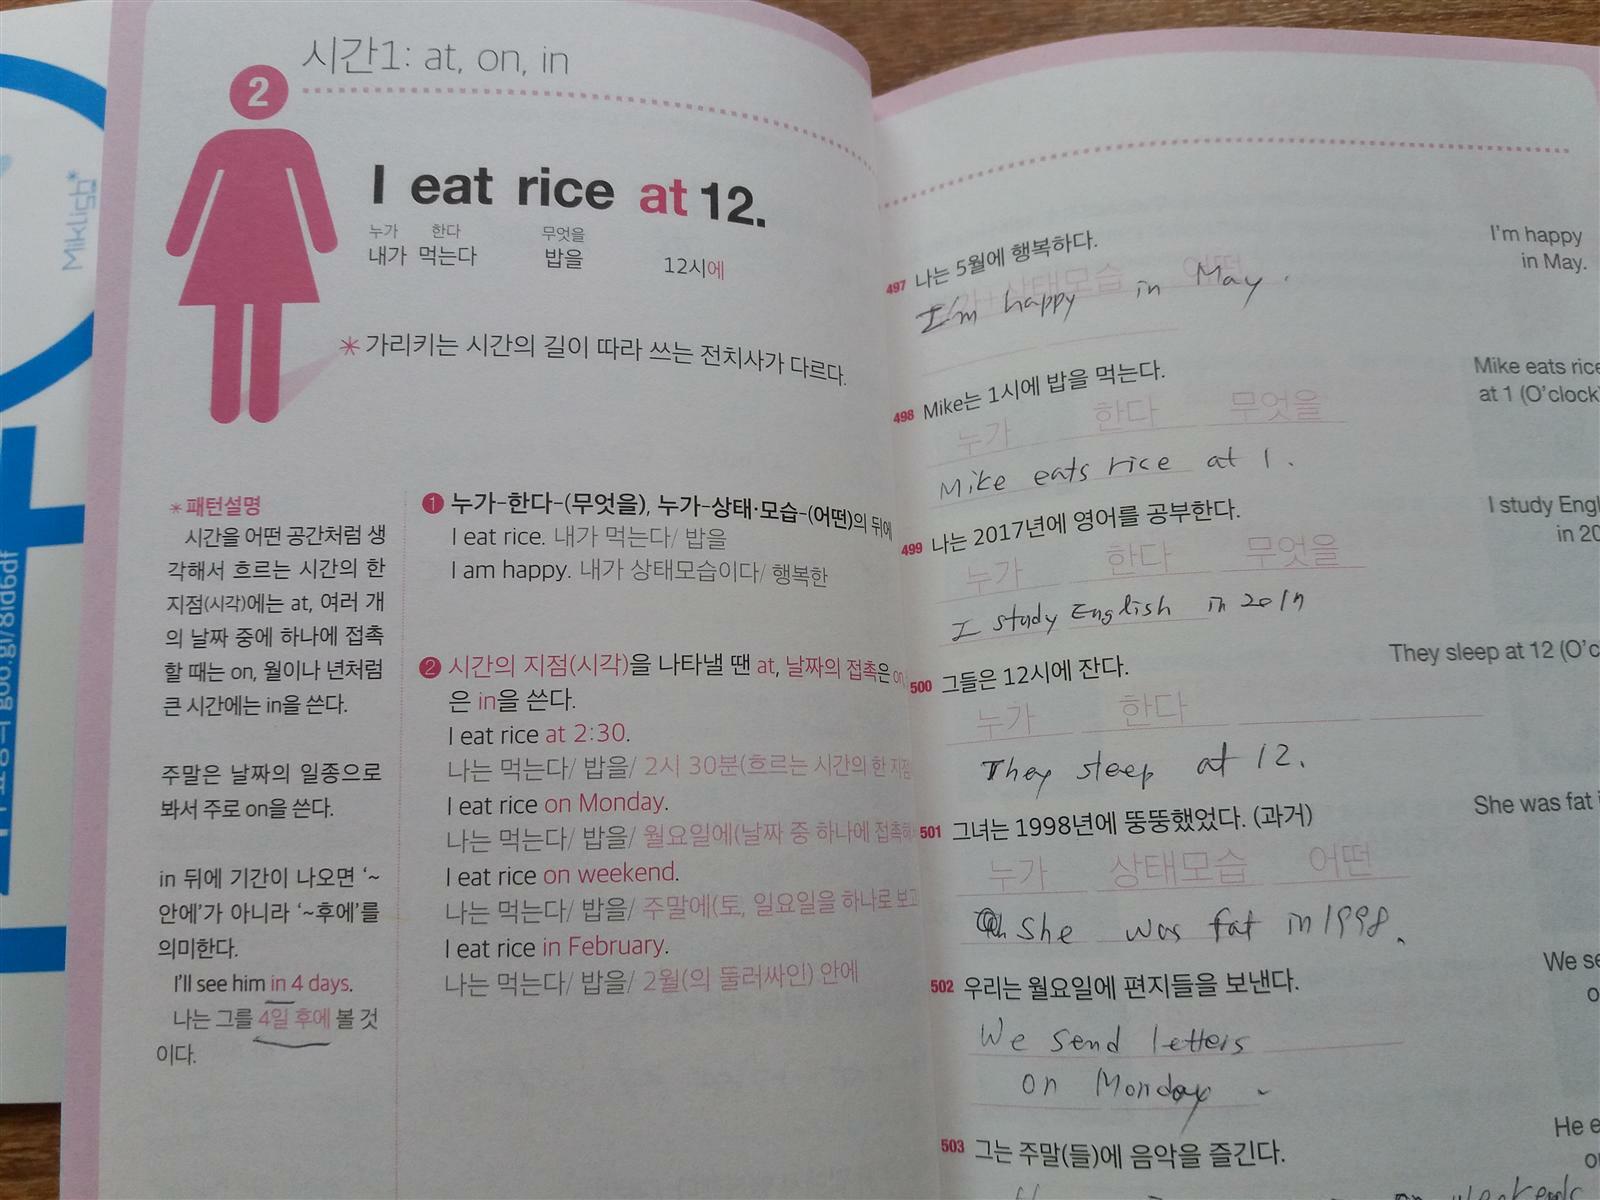 시간1: at, on, in
2
I eat rice at 12.
누가 한다 무엇을
내가 먹는다 밥을 12시에
* 가리키는 시간의 길이 따라 쓰는 전치사가 다르다.
* 패턴설명
시간을 어떤 공간처럼 생
각해서 흐르는 시간의 한
지점(시각)에는 at, 여러 개
의 날짜 중에 하나에 접촉
할 때는 on, 월이나 년처럼
큰 시간에는 in을 쓴다.
주말은 날짜의 일종으로
봐서 주로 on을 쓴다.
in 뒤에 기간이 나오면 '~
안에'가 아니라 '~후에'를
의미한다.
I'll see him in 4 days.
나는 그를 4일 후에 볼 것
이다.
1 누가-한다-(무엇을), 누가-상태·모습-(어떤)의 뒤에
I eat rice. 내가 먹는다/ 밥을
I am happy. 내가 상태모습이다/ 행복한
2 시간의 지점(시각)을 나타낼 땐 at, 날짜의 접촉은 on,
은 in을 쓴다.
I eat rice at 2:30.
나는 먹는다/ 밥을/ 2시 30분(흐르는 시간의 한 지점
I eat rice on Monday.
나는 먹는다/ 밥을/ 월요일에(날짜 중 하나에 접촉해
I eat rice on weekend.
나는 먹는다/ 밥을/ 주말에(토, 일요일을 하나로 보고
I eat rice in February.
나는 먹는다/ 밥을/ 2월(의 둘러싸인) 안에
497 나는 5월에 행복하다.
누가 상태모습 어떤
I'm happy in May.
I'm happy
in May.
498 Mike는 1시에 밥을 먹는다.
누가 한다 무엇을
Mike eats rice at 1.
Mike eats rice
at 1 (O'clock)
499 나는 2017년에 영어를 공부한다.
누가 한다 무엇을
I study English in 2017
I study Engl
in 20
500 그들은 12시에 잔다.
누가 한다
They sleep at 12.
They sleep at 12 (O'c
501 그녀는 1998년에 뚱뚱했었다. (과거)
누가 상태모습 어떤
She was fat in 1998.
She was fat i
502 우리는 월요일에 편지들을 보낸다.
We send letters
on Monday
We se
o
503 그는 주말(들)에 음악을 즐긴다.
on weekends
He e
o
Miklish*
goo.gl/8id6df